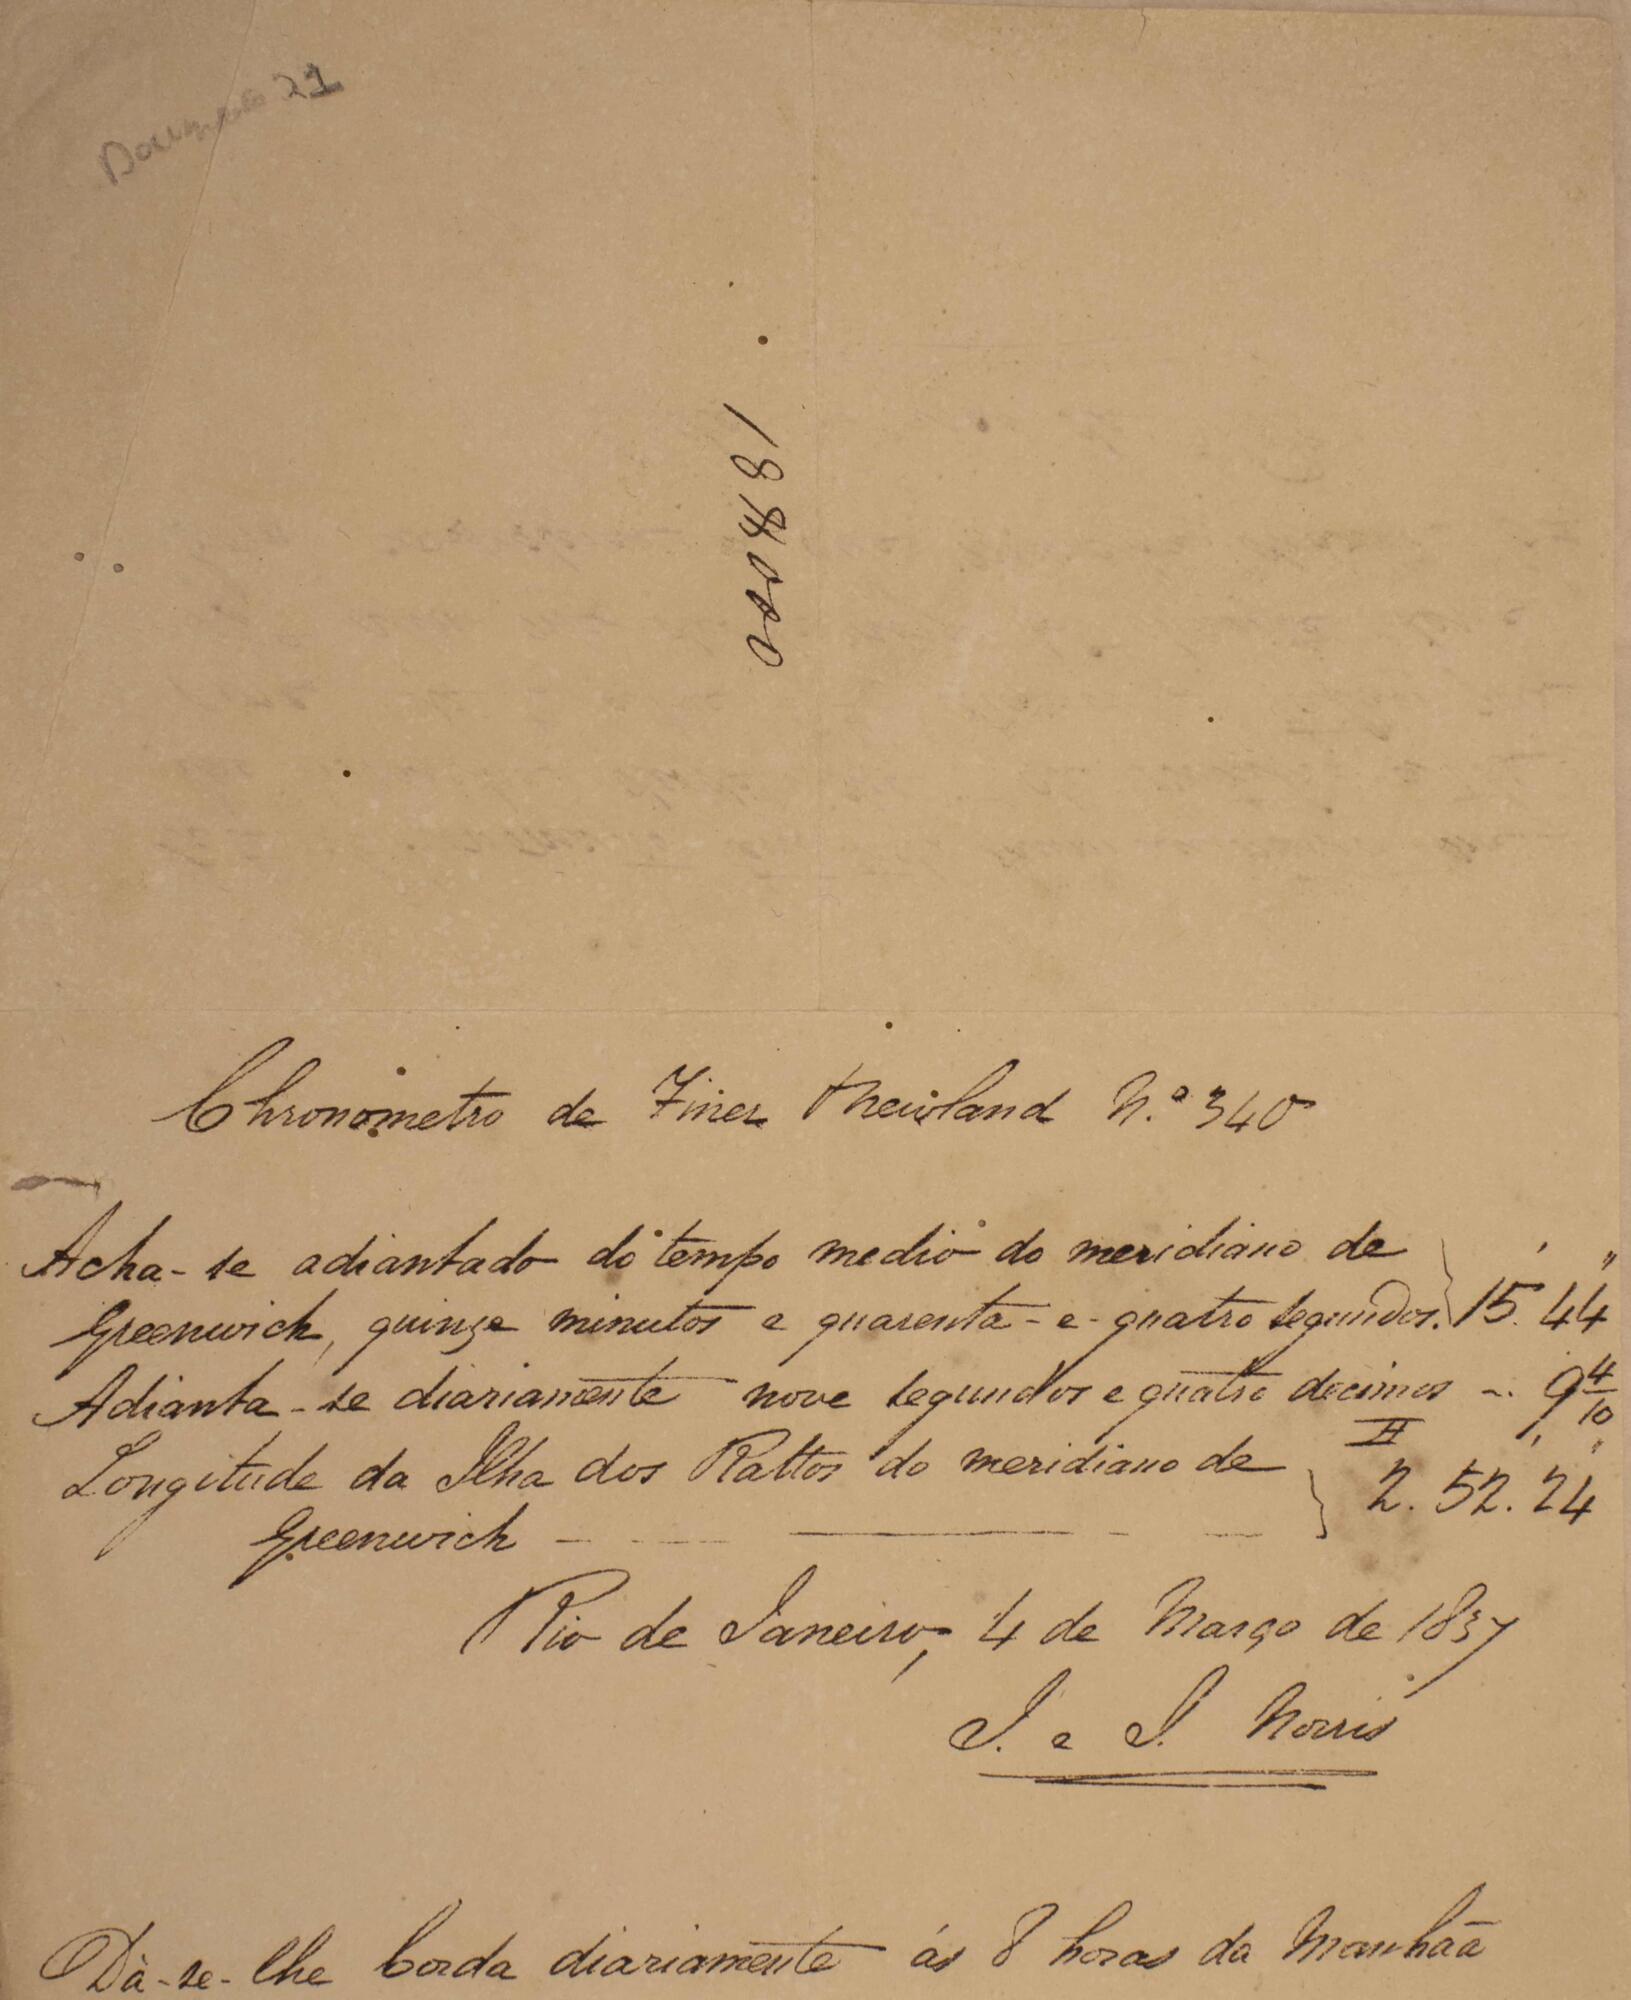 Documento 21
184000
Chronometro de Finer Thewland N.º 340
Acha-se adiantado do tempo medio do meridiano de
Greenwich, quinze minutos e quarenta-e-quatro segundos. } 15.' 44"
Adianta-se diariamente nove segundos e quatro decimos -.. 9 4/10
Longitude da Ilha dos Rattos do meridiano de
Greenwich - - - - } 2.H 52.' 24"
Rio de Janeiro, 4 de Março de 1857
J. e J. Norris
Dà-se-lhe corda diariamente ás 8 horas da Manhãa